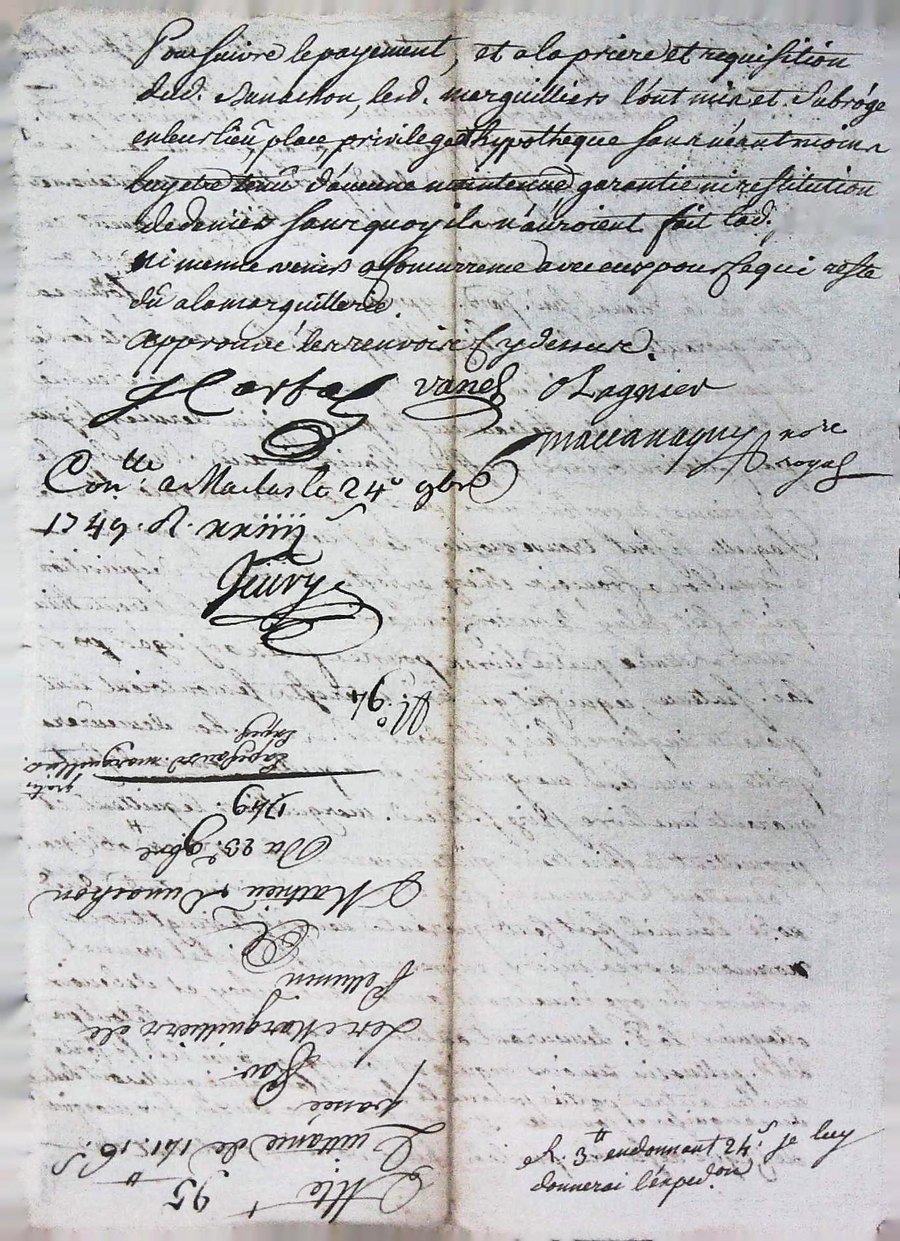 Poursuivre le payement, et a la priere et requisition
dud. Dunachon, lesd. marguilliers l'ont mis et subrogé
en leur lieu, place, privilege et hypotheque sans néantmoins
luy etre tenu d'aucune maintenue garantie ni restitution
de deniers sans quoy ils n'auroient fait lad.
ni meme venir a concurrence avec eux pour ce qui reste
dû a la marguillerie.
approuvé les renvois cy dessus.
Vanel O Lagnier
nore
royal
Contlle a Maclas le 24e 9bre
1749. R.
N.° 94
Exped. marguilliers
1749
Du 23e 9bre
Mathieu Dunachon
A
Pellussin
Les Marguilliers de
Par
passée
Quittance de 141tt 16s
Cotte 95
R. 3tt en donnant 24s je luy
donnerai l'expedon